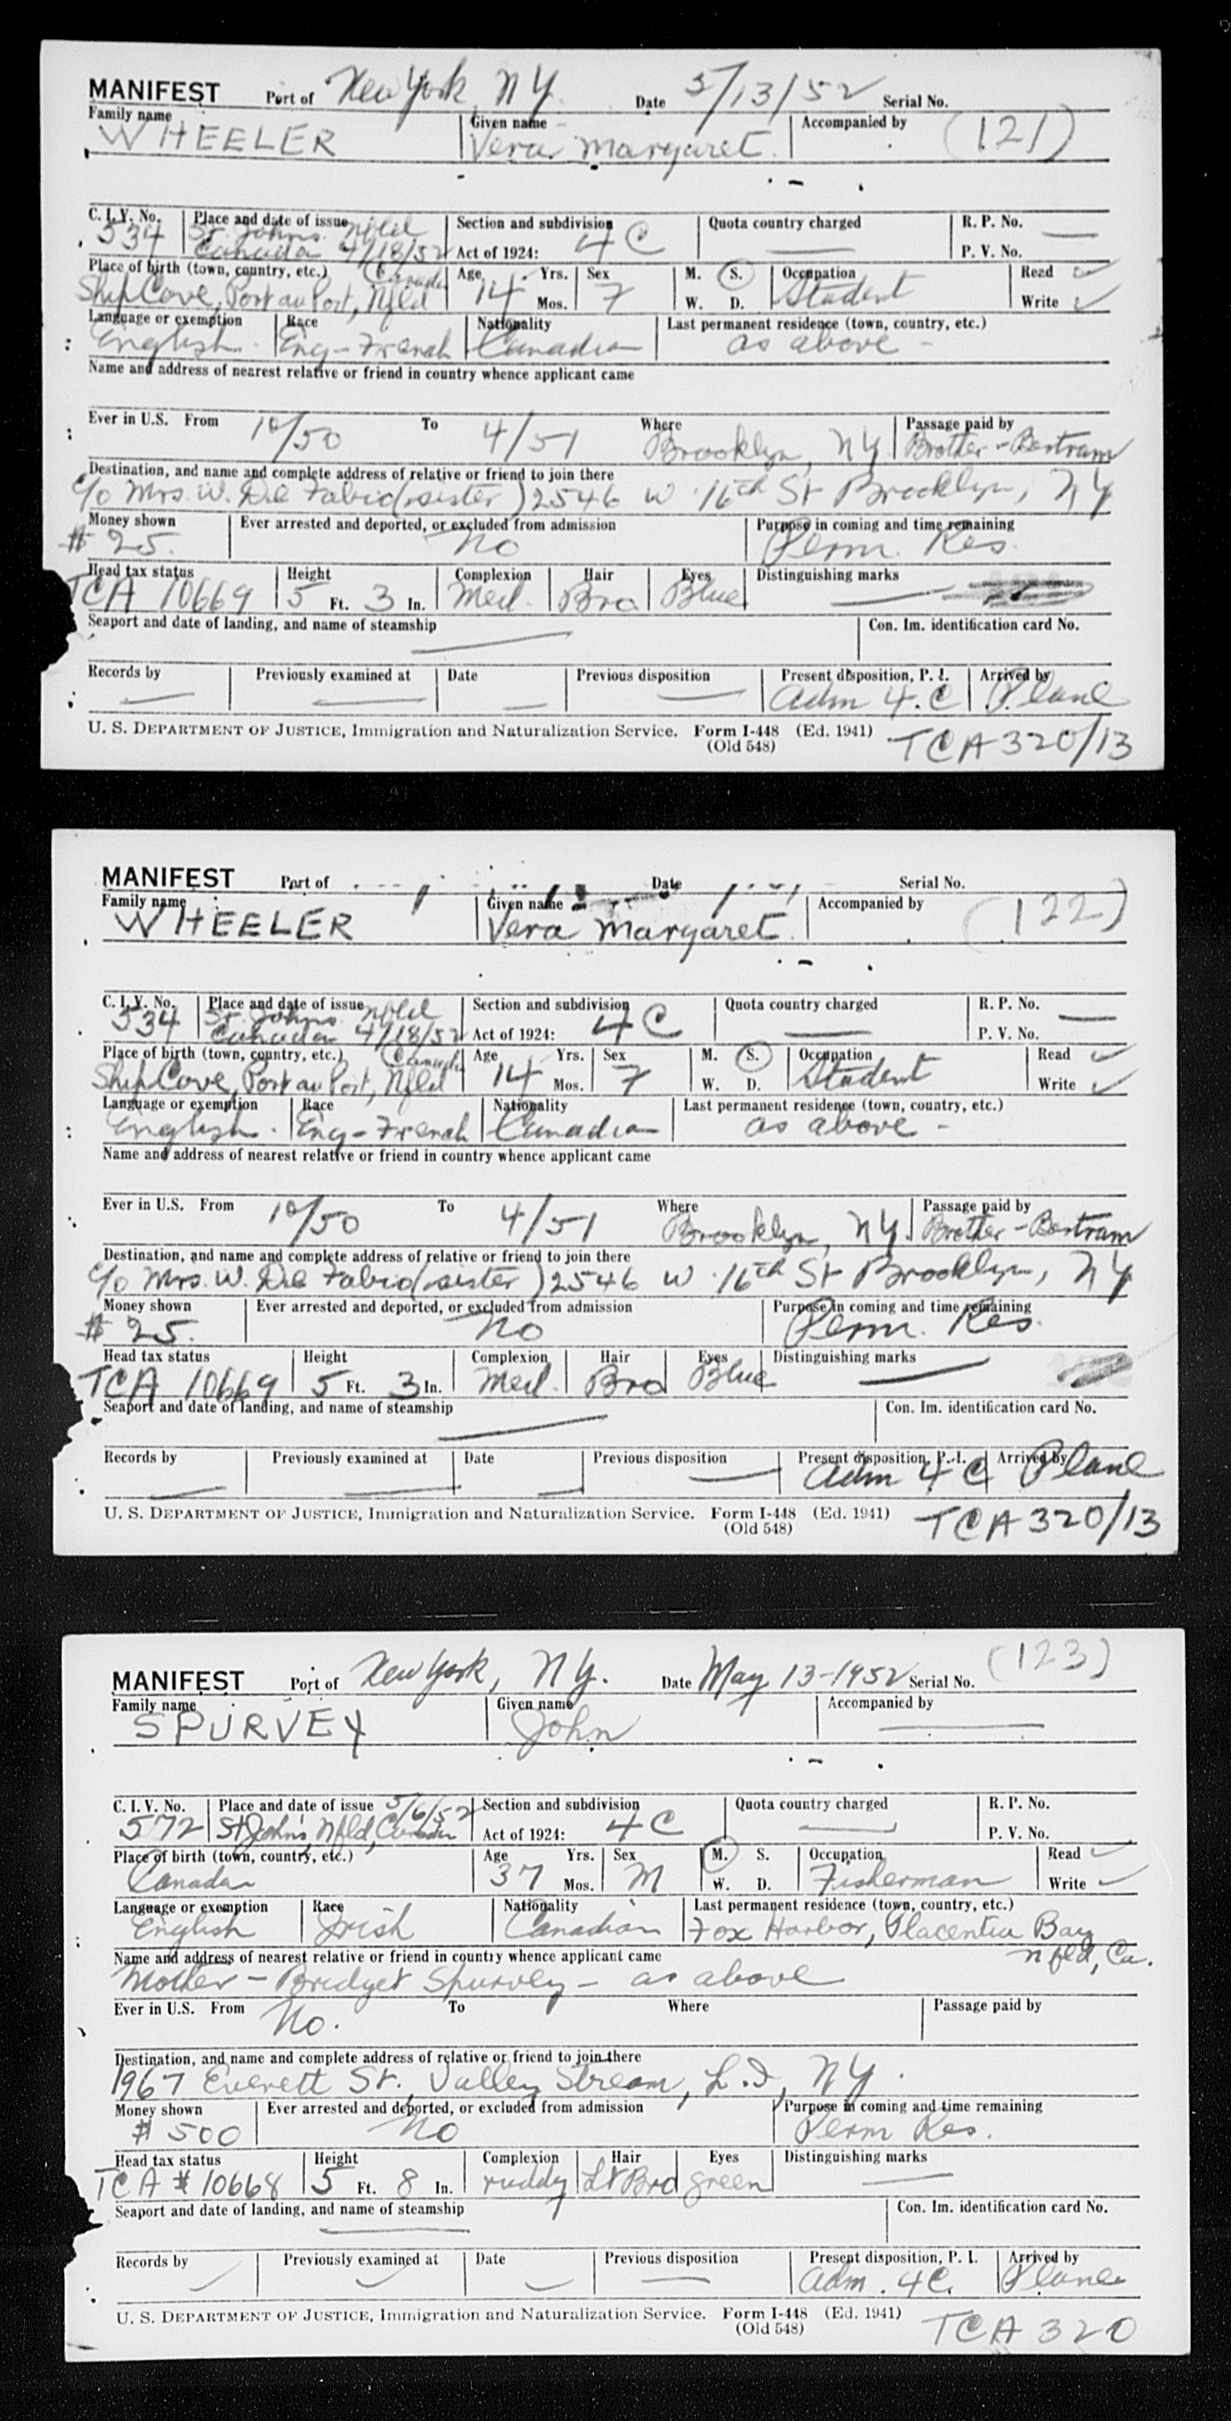 MANIFEST Port of New York, NY. Date 5/13/52 Serial No.
Family name Given name Accompanied by (121)
WHEELER Vera Margaret.
C. I. V. No. Place and date of issue Nfld Section and subdivision Quota country charged R. P. No. —
534 St. Johns Canada 4/18/52 Act of 1924: 4 C — P. V. No.
Place of birth (town, country, etc.) (Canada Age Yrs. Sex M. S. Occupation Read ✓
Ship Cove, Port au Port, Nfld 14 Mos. F W. D. Student Write ✓
Language or exemption Race Nationality Last permanent residence (town, country, etc.)
English. Eng-French Canadian as above -
Name and address of nearest relative or friend in country whence applicant came
Ever in U.S. From 10/50 To 4/51 Where Passage paid by
Brooklyn, NY. Brother-Bertram
Destination, and name and complete address of relative or friend to join there
c/o Mrs. W. De Fabio (sister) 2546 W. 16th St Brooklyn, NY
Money shown Ever arrested and deported, or excluded from admission Purpose in coming and time remaining
$ 25. No Perm. Res.
Head tax status Height Complexion Hair Eyes Distinguishing marks
TCA 10669 5 Ft. 3 In. Med. Bro Blue —
Seaport and date of landing, and name of steamship — Con. Im. identification card No.
Records by Previously examined at Date Previous disposition Present disposition, P. I. Arrived by
— — — — adm 4.C Plane
U. S. DEPARTMENT OF JUSTICE, Immigration and Naturalization Service. Form I-448 (Ed. 1941) TCA 320/13
(Old 548)
MANIFEST Port of Date Serial No.
Family name Given name Accompanied by (122)
WHEELER Vera Margaret.
C. I. V. No. Place and date of issue Nfld Section and subdivision Quota country charged R. P. No. —
534 St. Johns Canada 4/18/52 Act of 1924: 4 C — P. V. No.
Place of birth (town, country, etc.) (Canada Age Yrs. Sex M. S. Occupation Read ✓
Ship Cove, Port au Port, Nfld 14 Mos. F W. D. Student Write ✓
Language or exemption Race Nationality Last permanent residence (town, country, etc.)
English. Eng-French Canadian as above -
Name and address of nearest relative or friend in country whence applicant came
Ever in U.S. From 10/50 To 4/51 Where Passage paid by
Brooklyn, NY. Brother-Bertram
Destination, and name and complete address of relative or friend to join there
c/o Mrs. W. De Fabio (sister) 2546 W. 16th St Brooklyn, NY
Money shown Ever arrested and deported, or excluded from admission Purpose in coming and time remaining
$ 25. No Perm. Res.
Head tax status Height Complexion Hair Eyes Distinguishing marks
TCA 10669 5 Ft. 3 In. Med. Bro Blue —
Seaport and date of landing, and name of steamship — Con. Im. identification card No.
Records by Previously examined at Date Previous disposition Present disposition, P. I. Arrived by
— — — — adm 4 C Plane
U. S. DEPARTMENT OF JUSTICE, Immigration and Naturalization Service. Form I-448 (Ed. 1941) TCA 320/13
(Old 548)
MANIFEST Port of New York, NY. Date May 13-1952 Serial No. (123)
Family name Given name Accompanied by
SPURVEY John —
C. I. V. No. Place and date of issue 5/6/52 Section and subdivision Quota country charged R. P. No.
572 St John's, Nfld, Canada Act of 1924: 4 C — P. V. No.
Place of birth (town, country, etc.) Age Yrs. Sex M. S. Occupation Read ✓
Canada 37 Mos. M W. D. Fisherman Write ✓
Language or exemption Race Nationality Last permanent residence (town, country, etc.)
English Irish Canadian Fox Harbor, Placentia Bay
Name and address of nearest relative or friend in country whence applicant came Nfld, Ca.
Mother - Bridget Spurvey - as above
Ever in U.S. From No. To Where Passage paid by
Destination, and name and complete address of relative or friend to join there
1967 Everett St., Valley Stream, L.I., NY.
Money shown Ever arrested and deported, or excluded from admission Purpose in coming and time remaining
$ 500 No Perm Res.
Head tax status Height Complexion Hair Eyes Distinguishing marks
TCA # 10668 5 Ft. 8 In. ruddy Lt Bro green —
Seaport and date of landing, and name of steamship — Con. Im. identification card No.
Records by Previously examined at Date Previous disposition Present disposition, P. I. Arrived by
— — — — adm. 4C. Plane
U. S. DEPARTMENT OF JUSTICE, Immigration and Naturalization Service. Form I-448 (Ed. 1941) TCA 320
(Old 548)